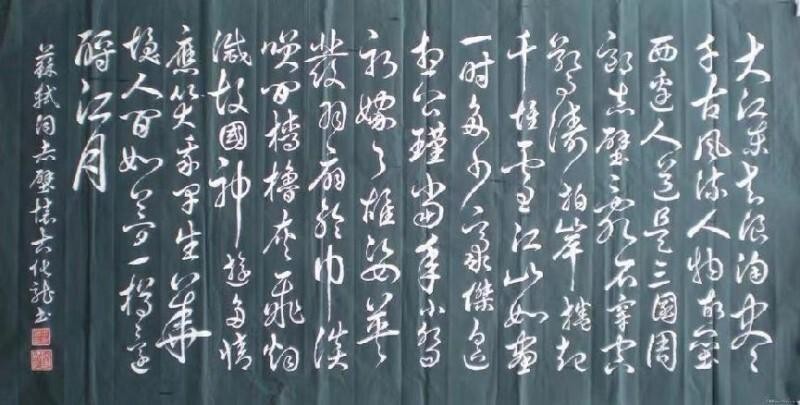 大江東去浪淘盡
千古風流人物故壘
西邊人道是三國周
郎赤壁亂石穿空
驚濤拍岸捲起
千堆雪江山如畫
一時多少豪傑遙
想公瑾當年小喬
初嫁了雄姿英
發羽扇綸巾談
笑間檣櫓灰飛烟
滅故國神遊多情
應笑我早生華
髮人間如夢一樽還
酹江月
蘇軾詞赤壁懷古代龍書